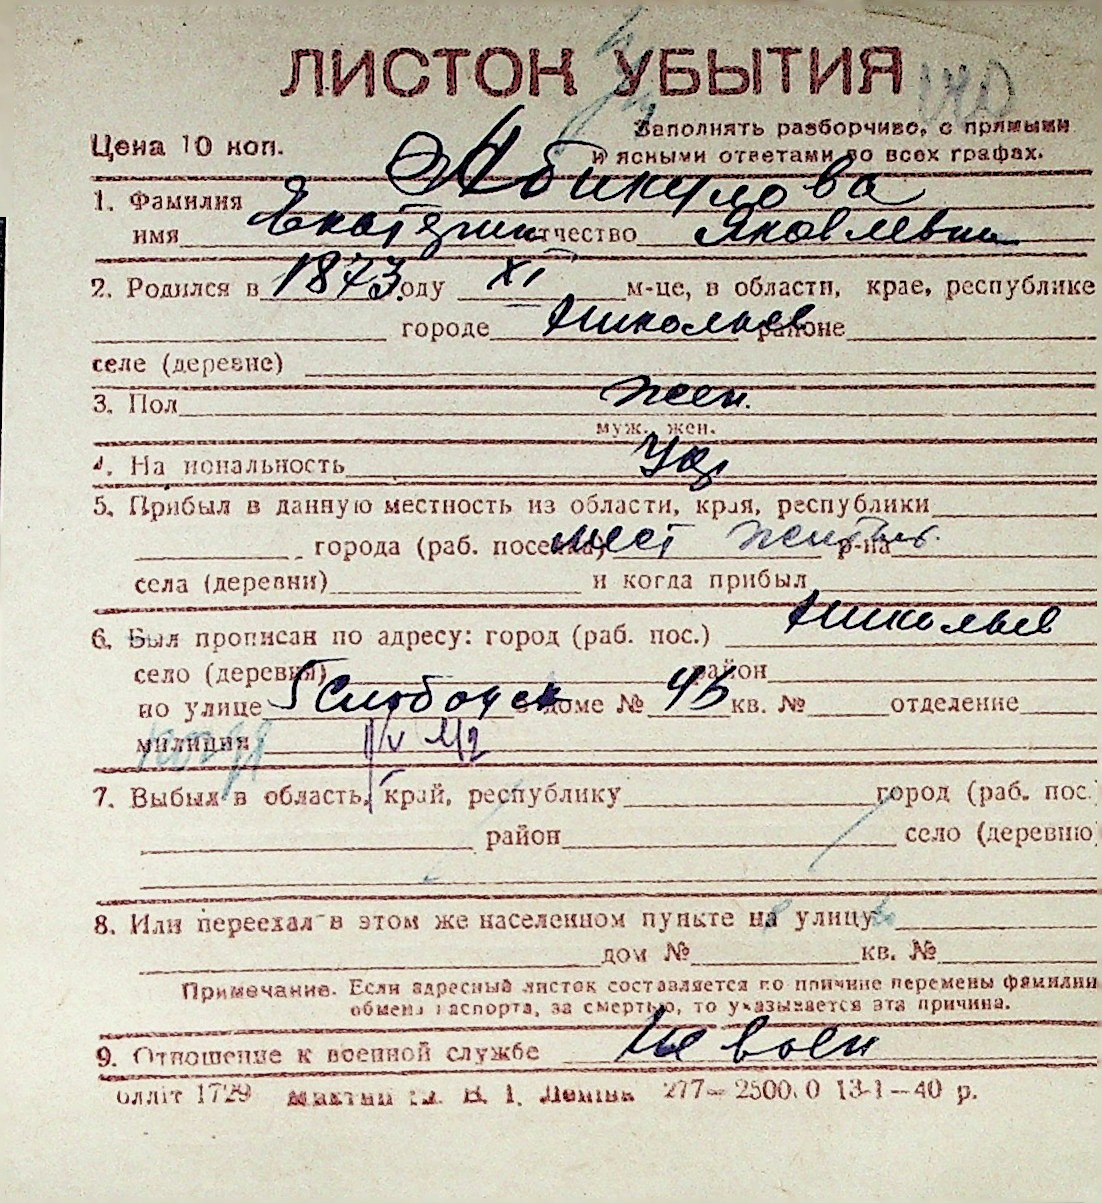 ЛИСТОК УБЫТИЯ
Цена 10 коп.
Заполнять разборчиво, с прямыми
и ясными ответами во всех графах.
1. Фамилия Абикулова
имя Екатерин отчество Яковлевна
2. Родился в 1873 году XI м-це, в области, крае, республике
городе Николаев районе
селе (деревне)
3. Пол жен.
муж. жен.
4. Национальность Укр
5. Прибыл в данную местность из области, края, республики
города (раб. поселка) мест жительн. р-на
села (деревни) и когда прибыл
6. Был прописан по адресу: город (раб. пос.) Николаев
село (деревня) район
по улице 5 Слободск в доме № 45 кв. № отделение
милиции
7. Выбыл в область, край, республику город (раб. пос.)
район село (деревню)
8. Или переехал в этом же населенном пункте на улицу
дом № кв. №
Примечание. Если адресный листок составляется по причине перемены фамилии
обмена паспорта, за смертью, то указывается эта причина.
9. Отношение к военной службе Не воен
олліт 1729 277–2500.0 13-1–40 р.